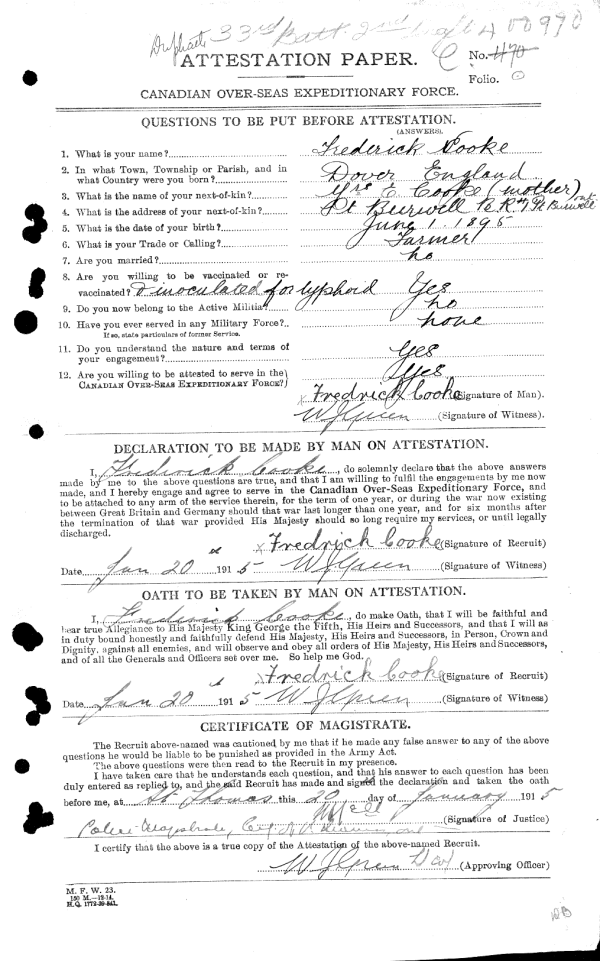 Duplicate 33rd Batt 2nd Draft 400970
ATTESTATION PAPER.
No. 470
Folio.
CANADIAN OVER-SEAS EXPEDITIONARY FORCE.
QUESTIONS TO BE PUT BEFORE ATTESTATION.
(ANSWERS).
1. What is your name? Frederick Cooke
2. In what Town, Township or Parish, and in
what Country were you born? Dover England
3. What is the name of your next-of-kin? Mrs E Cooke (mother)
4. What is the address of your next-of-kin? Pt Burwell R R #1 Pt Burwell ont
5. What is the date of your birth? June 1. 1895
6. What is your Trade or Calling? Farmer
7. Are you married? no
8. Are you willing to be vaccinated or re-
vaccinated? & inoculated for typhoid Yes
9. Do you now belong to the Active Militia? no
10. Have you ever served in any Military Force? none
If so, state particulars of former Service.
11. Do you understand the nature and terms of
your engagement? Yes
12. Are you willing to be attested to serve in the
CANADIAN OVER-SEAS EXPEDITIONARY FORCE? Yes
x Fredrick Cooke (Signature of Man).
W J Green (Signature of Witness).
DECLARATION TO BE MADE BY MAN ON ATTESTATION.
I, Frederick Cooke, do solemnly declare that the above answers
made by me to the above questions are true, and that I am willing to fulfil the engagements by me now
made, and I hereby engage and agree to serve in the Canadian Over-Seas Expeditionary Force, and
to be attached to any arm of the service therein, for the term of one year, or during the war now existing
between Great Britain and Germany should that war last longer than one year, and for six months after
the termination of that war provided His Majesty should so long require my services, or until legally
discharged.
x Fredrick Cooke (Signature of Recruit)
Date Jan 20 1915 W J Green (Signature of Witness)
OATH TO BE TAKEN BY MAN ON ATTESTATION.
I, Frederick Cooke, do make Oath, that I will be faithful and
bear true Allegiance to His Majesty King George the Fifth, His Heirs and Successors, and that I will as
in duty bound honestly and faithfully defend His Majesty, His Heirs and Successors, in Person, Crown and
Dignity, against all enemies, and will observe and obey all orders of His Majesty, His Heirs and Successors,
and of all the Generals and Officers set over me. So help me God.
x Fredrick Cooke (Signature of Recruit)
Date Jan 20 1915 W J Green (Signature of Witness)
CERTIFICATE OF MAGISTRATE.
The Recruit above-named was cautioned by me that if he made any false answer to any of the above
questions he would be liable to be punished as provided in the Army Act.
The above questions were then read to the Recruit in my presence.
I have taken care that he understands each question, and that his answer to each question has been
duly entered as replied to, and the said Recruit has made and signed the declaration and taken the oath
before me, at St Thomas this 20 day of January 1915
(Signature of Justice)
Police Magistrate, City of St Thomas, Ont
I certify that the above is a true copy of the Attestation of the above-named Recruit.
W J Green (Approving Officer)
M. F. W. 23.
150 M.—12-14.
H.Q. 1772-39-841.